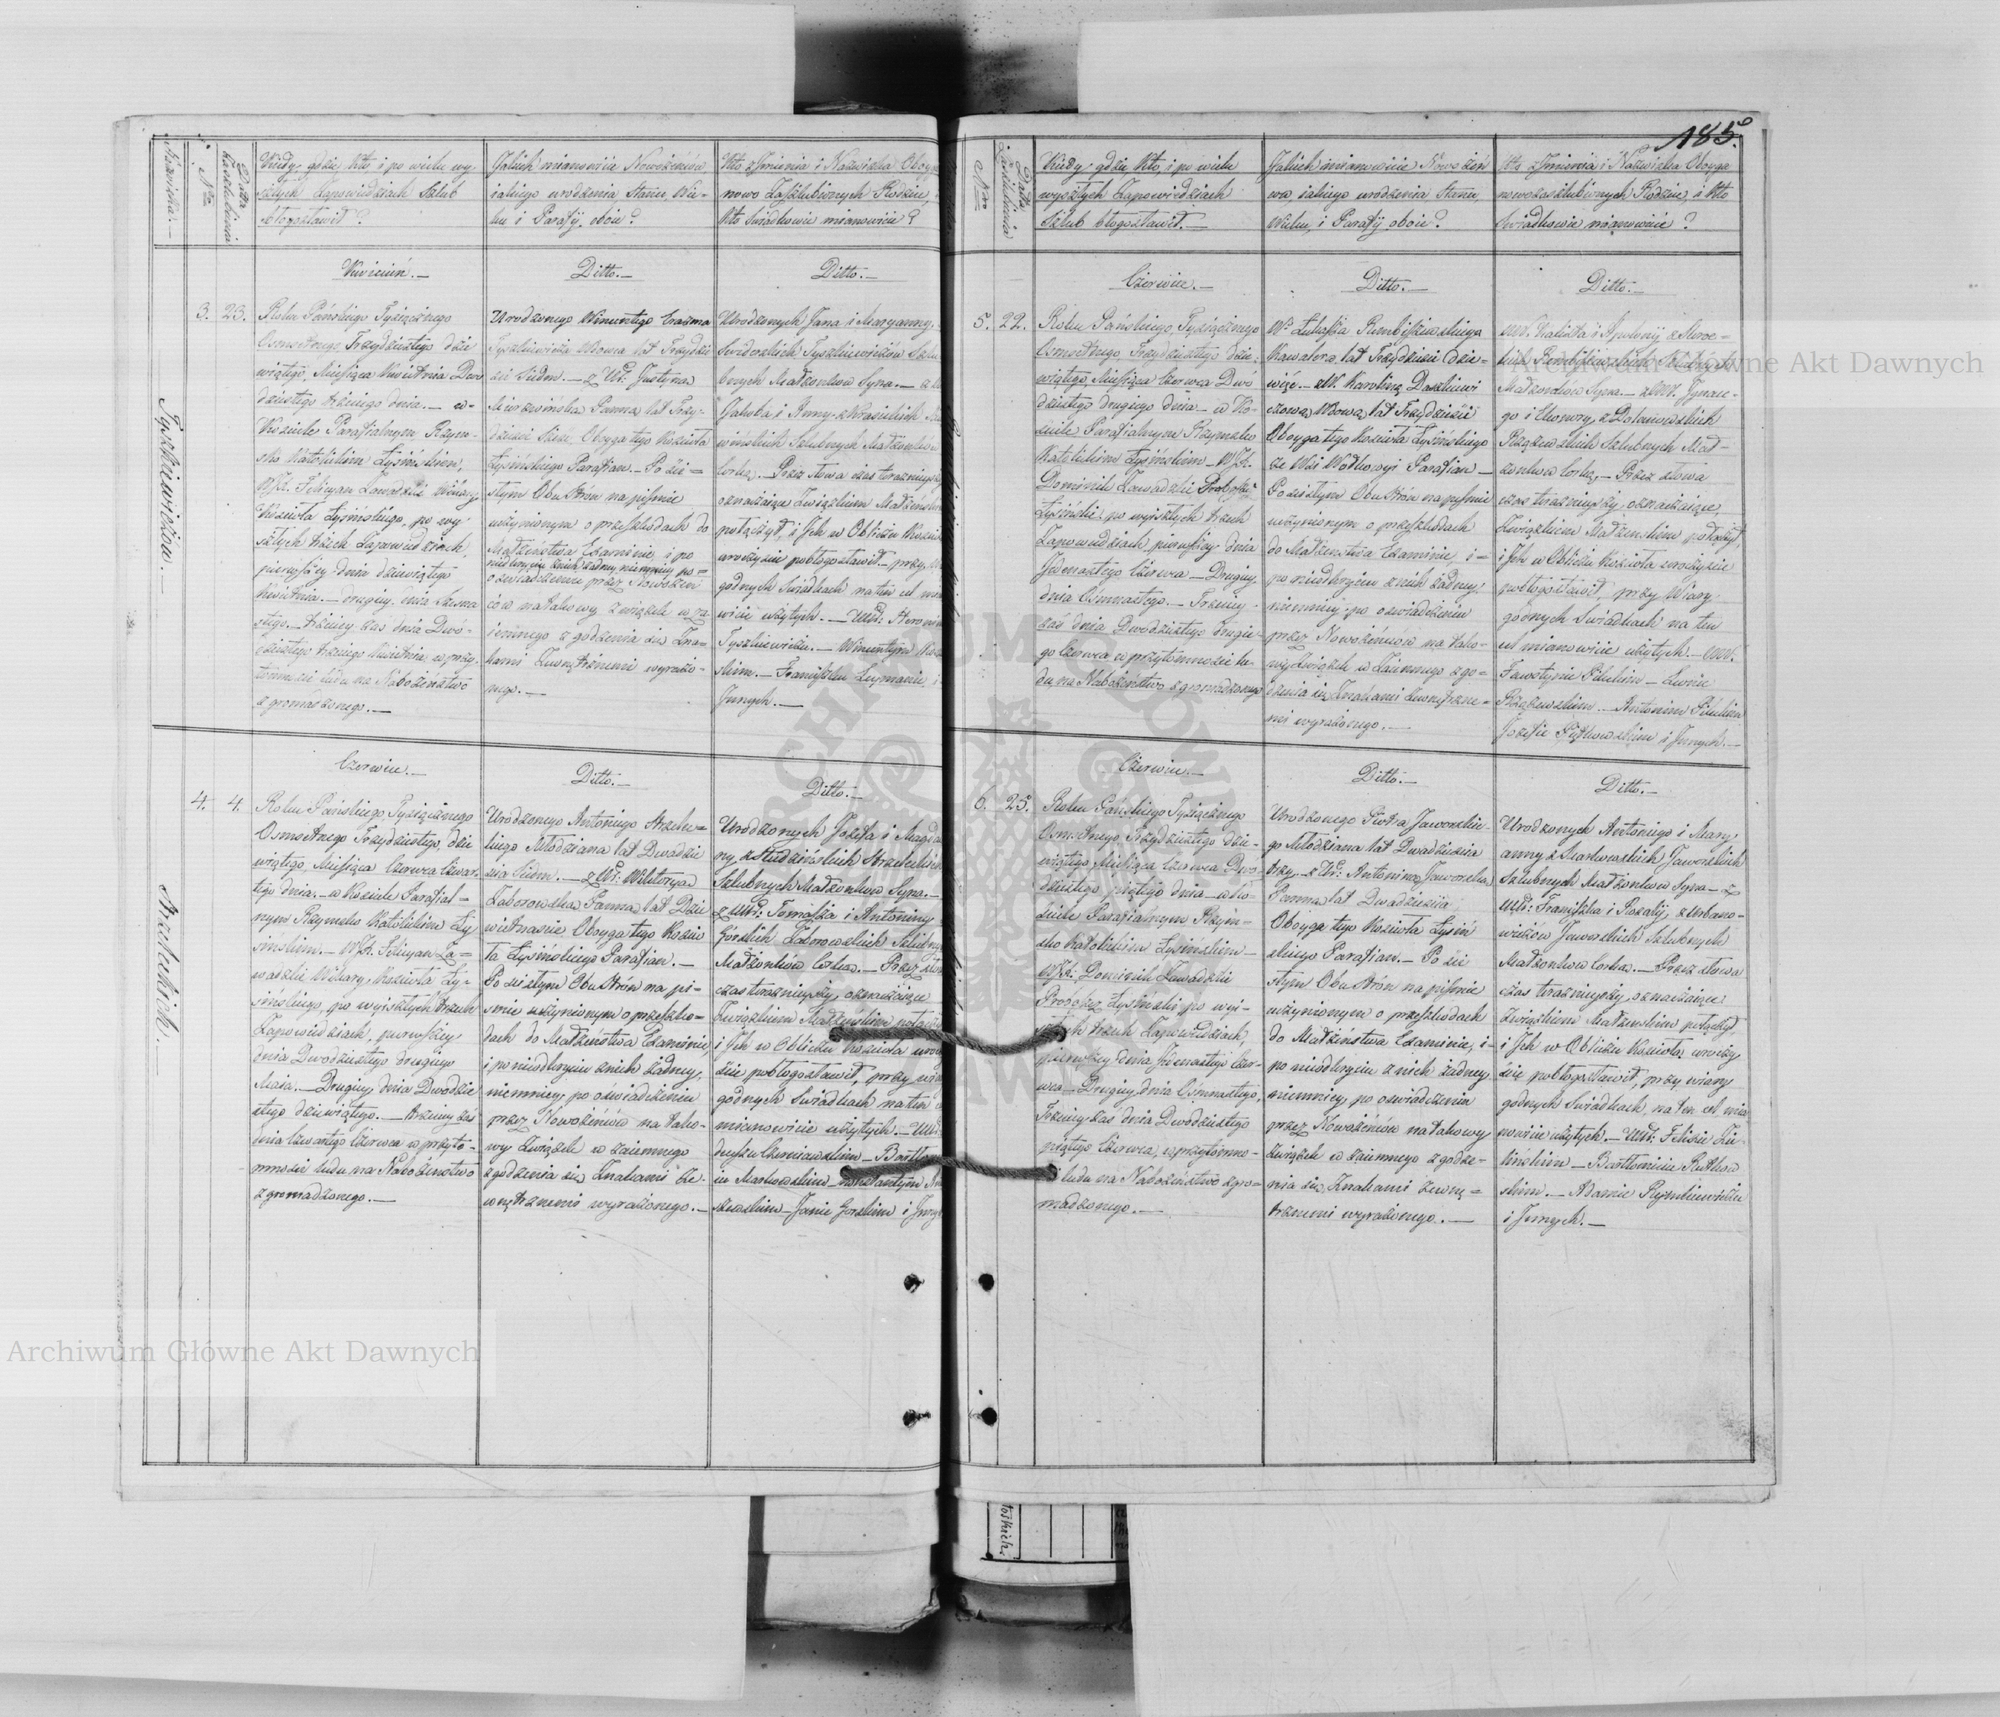 185
Nazwiska.
Nro
Data Zaślubienia
Kiedy, gdzie, kto, i po wielu wy-
szłych Zapowiedziach Szlub
błogosławił?
Jakich mianowicie Nowożeńców,
jakiego urodzenia Stanu, Wie-
ku i Parafij, oboie?
Kto z Imienia i Nazwiska Oboyga
nowo Zaszlubionych Rodzice,
Kto Swiadkowie mianowicie?
Tyszkiewiczow.
Kwiecień.
Ditto.
Ditto.
3. 23.
Roku Pańskiego Tysiącznego
Osmsetnego Trzydziestego dzie
wiątego, Miesiąca Kwietnia Dwu
dziestego trzeciego dnia. — w-
Kosciele Parafialnym Rzym-
sko Katolickim Łysińskim,
WJX. Felicyan Zawadzki Wikary
Kościoła Łysińskiego, po wy-
szłych trzech Zapowiedziach,
pierwszey dnia dziewiątego
Kwietnia. — drugiey dnia
stego. — trzeciey zas dnia Dwó-
dziestego trzeciego Kwietnia w przy-
tomnosci ludu na Nabożeństwo
zgromadzonego. —
Urodzonego Wincentego Erazma
Tyszkiewicza Wdowca lat Trzydzie
sci Siedm. — z Ur: Justyną
Panną lat Trzy-
dziesci Oboyga tego Kościoła
Łysińskiego Parafian. — Po ści-
słym Obu Strón na pismie
uczynionym o przeszkodach do
Małżeństwa Examinie, i po
nieodkryciu żadney niemniey po
oswiadczeniu przez Nowożeń
ców na takowy Związek wza
iemnego zgodzenia się Zna-
kami Zewnętrznemi wyrażo-
nego. —
Urodzonych Jana i Maryanny
Swiderskich Tyszkiewiczów Szlu
bnych Małżonków Syna. — z
Jakuba i Anny
Szlubnych Małżonków
Corką. — Przez słowa czas teraznieyszy
oznaczaiące Związkiem Małżeńskim
połączył, i Ich w Obliczu Kościoła
uroczyscie pobłogosławił przy
godnych Swiadkach na ten cel
wicie użytych. — Ur:
Tyszkiewiczu. — Wincentym
skim. — Franciszku Szymanie i
Innych. —
Strzeleckich.
Czerwiec.
Ditto.
Ditto.
4. 4.
Roku Pańskiego Tysiącznego
Osmsetnego Trzydziestego, dzie
wiątego, Miesiąca Czerwca Czwar
tego dnia. — w Kosciele Parafial-
nym Rzymsko Katolickim Ły
sińskim. — WJX. Felicyan Za-
wadzki Wikary Kościoła Ły-
sińskiego, po wyszłych trzech
Zapowiedziach, pierwszey
dnia Dwudziestego drugiego
Maia. — Drugiey dnia Dwudzie
stego dziewiątego. — trzeciey zas
dnia Czwartego Czerwca w przyto-
mnosci ludu na Nabożeństwo
zgromadzonego. —
Urodzonego Antoniego Strzelec-
kiego Młodziana lat Dwadzie
scia Siedm. — z Ur: Wiktoryą
Zaborowską Panną lat Dzie
więtnascie Oboyga tego Koscio
ła Łysińskiego Parafian. —
Po scisłym Obu Strón na pi-
smie uczynionym o przeszko-
dach do Małżeństwa Examinie,
i po nieodkryciu z nich żadney,
niemniey po oswiadczeniu
przez Nowożeńców na tako-
wy Związek wzaiemnego
zgodzenia się Znakami Ze-
wnętrznemi wyrażonego. —
Urodzonych Jozefa i Magda
ny z Studzińskich Strzeleckich
Szlubnych Małżonków Syna. —
z Ur: Tomasza i Antoniny
Górskich Zaborowskich Szlubnych
Małżonków Corką. — Przez słowa
czas teraznieyszy oznaczaiące
Związkiem Małżeńskim połączył
i Ich w Obliczu Kościoła uroczy
scie pobłogosławił, przy wiary
godnych Swiadkach na ten cel
mianowicie użytych. — Ur:
Czerniawskim — Bartło
ju Markowskim — Konstantym
szewskim — Janie Gorskim i Innych
Nro
Data Zaslubienia
Kiedy, gdzie, Kto, i po wielu
wyszłych Zapowiedziach
Szlub błogosławił. —
Jakich mianowicie Nowożeń
ców iakiego urodzenia Stanu,
Wieku, i Parafij oboie?
Kto z Imienia i Nazwiska Oboyga
nowozaszlubionych Rodzice, i Kto
Swiadkowie mianowicie?
Czerwiec. —
Ditto. —
Ditto. —
5. 22.
Roku Pańskiego, Tysiącznego
Osmsetnego Trzydziestego dzie-
wiątego, Miesiąca Czerwca Dwó
dziestego drugiego dnia — w Ko-
sciele Parafialnym Rzymsko
Katolickim Łysińskim — WJX.
Dominik Zawadzki Proboszcz
Łysiński po wyszłych trzech
Zapowiedziach pierwszey dnia
Jedenastego Czerwca — Drugiey
dnia Osmnastego. — Trzeciey
zaś dnia Dwudziestego drugie-
go Czerwca w przytomnosci lu-
du na Nabożeństwo zgromadzonego
Wo Łukasza Rembiszewskiego
Kawalera, lat Trzydziesci dzie-
więć. — z W. Karoliną Daszkiewi
czową Wdową lat Trzydziesci
Oboyga tego Kościoła Łysińskiego
ze Wsi Wodkowyi Parafian —
Po scisłym Obu Strón na pismie
uczynionym o przeszkodach
do Małżeństwa Examinie, i —
po nieodkryciu z nich żadney
niemniey po oswiadczeniu
przez Nowożeńców na tako-
wy Związek wzaiemnego zgo-
dzenia się Znakami Zewnętrzne-
mi wyrażonego. —
WW. Kalixta i Apolonij z
Rembiszewskich Szlubnych
Małżonków Syna. — z WW. Ignace-
go i Eleonory z
Szlubnych Mał-
żonków Corką, — Przez słowa
czas teraznieyszy oznaczaiące,
Związkiem Małżeńskim połączył,
i Ich w Obliczu Kościoła uroczyscie
pobłogosławił, przy Wiary
godnych Swiadkach na ten
cel mianowicie użytych. — WW.
Faustynie Pileckim — Ewnie
Antonim Pileckim
Jozefie Piotrowskim i Innych. —
Czerwiec. —
Ditto. —
Ditto. —
6. 25.
Roku Pańskiego Tysiącznego
Osmsetnego Trzydziestego dzie-
wiątego, Miesiąca Czerwca Dwó-
dziestego piątego dnia — w Ko-
sciele Parafialnym Rzym-
sko Katolickim Łysińskim —
WJX: Dominik Zawadzki
Proboszcz Łysiński po wy-
szłych trzech Zapowiedziach,
pierwszey dnia Jedenastego Czer-
wca — Drugiey dnia Osmnastego,
Trzeciey zas dnia Dwudziestego
piątego Czerwca, w przytomno-
sci ludu na Nabożeństwo zgro-
madzonego. —
Urodzonego Piotra Jaworskie-
go Młodziana lat Dwadziescia
trzy — z Ur: Antoniną Jaworską
Panną lat Dwadziescia
Oboyga tego Kościoła Łysiń
skiego Parafian. — Po ści
słym Obu Strón na pismie
uczynionym o przeszkodach
do Małżeństwa Examinie, i-
po nieodkryciu z nich żadney
niemniey po oswiadczeniu
przez Nowożeńców na takowy
Związek wzaiemnego zgodze-
nia się Znakami Zewnę-
trznemi wyrażonego. —
Urodzonych Antoniego i Mary
anny z Markowskich Jaworskich
Szlubnych Małżonków Syna — z
Ur: Franciszka i Rozalij z Urbano-
wiczów Jaworskich Szlubnych
Małżonków Corką. — Przez słowa
czas teraznieyszy, oznaczaiące
Związkiem Małżeńskim połączył,
i Ich w Obliczu Kościoła uroczy
scie pobłogosławił, przy wiary
godnych Swiadkach, na ten cel mia
nowicie użytych. — Ur: Felixie Zie-
lińskim — Bartłomieiu Rutkow
skim. — Adamie Rymkiewiczu
i Innych. —
Archiwum Główne Akt Dawnych
Archiwum Główne Akt Dawnych